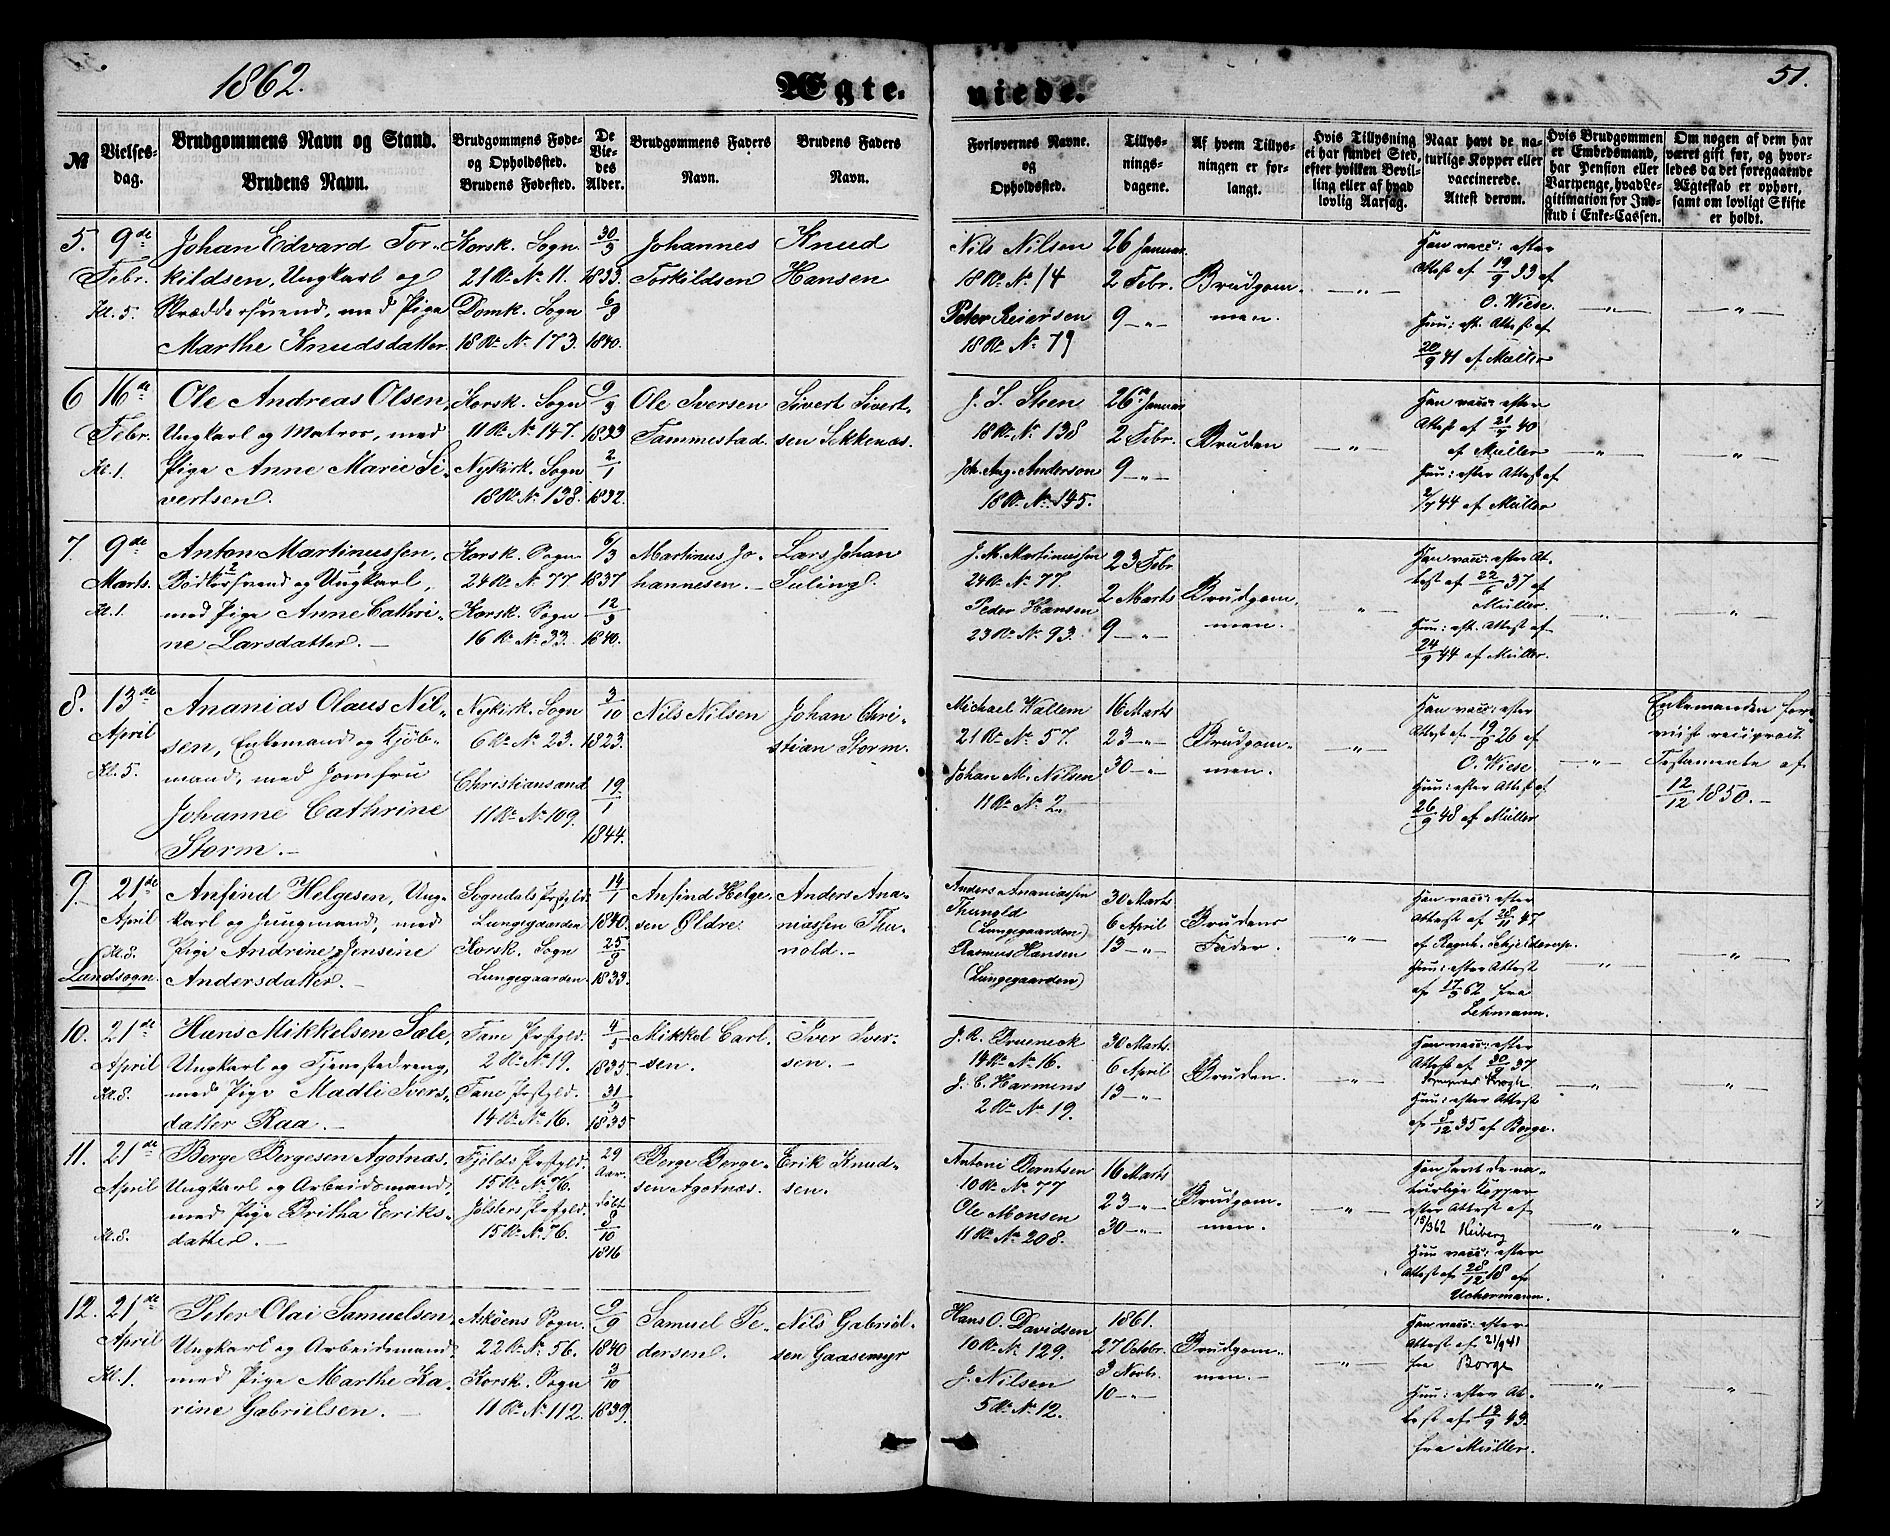 1862.
Ægte-
viede.
51.
№
Vielses-
dag.
Brudgommens Navn og Stand.
Brudens Navn.
Brudgommens Føde-
og Opholdssted.
Brudens Fødested.
De
Vie-
des
Alder.
Brudgommens Faders
Navn.
Brudens Faders
Navn.
Forlovernes Navne.
og
Opholdssted.
Tillys-
nings-
dagene.
Af hvem Tillys-
ningen er for-
langt.
Hvis Tillysning
ei har fundet Sted,
efter hvilken Bevil-
ling eller af hvad
lovlig Aarsag.
Naar havt de na-
turlige Kopper eller
vaccinerede.
Attest derom.
Hvis Brudgommen
er Embedsmand,
har Pension eller
Vartpenge, hvad Le-
gitimation for Ind-
skud i Enke-Cassen.
Om nogen af dem har
været gift før, og hvor-
ledes da det foregaaende
Ægteskab er ophørt,
samt om lovligt Skifte
er holdt.
5.
9de
Febr.
Kl. 5
Johan Edvard Tor-
kildsen, Ungkarl og
Skræddersvend, med Pige
Marthe Knudsdatter.
Korsk. Sogn
21 Rd. No 11.
Domk. Sogn
18 Rd. No 173.
30/3
1833.
6/9
1840.
Johannes
Torkildsen
Knud
Hansen
Nils Nilsen
18 Rd. No 14
Peter Reiersen
18 Rd. No 79
26 Januar
2 Febr.
9 — „ —
Brudgom-
men.
— „ —
Han vacc: efter
Attest af 19/9 33 af
O. Wiese.
Hun: eft. Attest af
20/9 41 af Müller
— „ —
— „ —
6
16de
Febr.
Kl. 1.
Ole Andreas Olsen,
Ungkarl og Matros, med
Pige Anne Marie Si-
vertsen.
Korsk. Sogn
11 Rd. No 147.
Nykirk. Sogn
18 Rd. No 138.
9/9
1833
2/1
1832.
Ole Iversen
Tammestad.
Sivert Sivert-
sen Sekkenæs.
J. S. Steen
18 Rd. No 138
Joh. Aug. Anderson
18 Rd. No 145.
26de Januar
2 Febr.
9 — „ —
Bruden
— „ —
Han vacc: efter
Attest af 21/7 40
af Müller
Hun: efter Attest af
2/7 44 af Müller
— „ —
— „ —
7
9de
Marts.
Kl. 1.
Anton Martinussen,
Bødkersvend og Ungkarl,
med Pige Anne Cathri-
ne Larsdatter. —
Korsk. Sogn
24 Rd. No 77.
Korsk. Sogn
16 Rd. No 33.
6/3
1837
12/3
1840.
Martinus Jo-
hannesen. —
Lars Johan
Suling.
J. M. Martinussen
24 Rd. No 77.
Peder Hansen
23 Rd. No 93.
23 Febr.
2 Marts
9 — „ —
Brudgom-
men.
„
Han vacc: efter At-
test af 22/6 37 af
Müller.
Hun: eft. Attest af
24/9 44 af Müller.
— „ —
„
8.
13de
April
Kl. 5.
Ananias Olaus Nil-
sen, Enkemand og Kjøb-
mand, med Jomfru
Johanne Cathrine
Storm. —
Nykirk. Sogn
6 Rd. No 23.
Christiansand
11 Rd. No 109.
3/10
1823.
19/1
1844.
Nils Nilsen
Johan Chri-
stian Storm.
Michael Wallem
21 Rd. No 57.
Johan M. Nilsen
11 Rd. No 2.
16 Marts
23 — „ —
30 — „ —
Brudgom-
men.
— „ —
Han vacc: efter
Attest af 19/8 26 af
O. Wiese.
Hun: efter Attest af
26/9 48 af Müller
— „ —
Enkemanden fore-
viist reciproct
Testamente af
12/12 1850. —
9.
21de
April
Kl. 8.
Landsogn.
Anfind Helgesen, Ung-
karl og Jungmand, med
Pige Andrine Jensine
Andersdatter. —
Sogndals Prstgld.
Lungegaarden
Korsk. Sogn
Lungegaarden
14/1
1840.
25/9
1833.
Anfind Helge-
sen Øldre.
Anders Ana-
niassen Thu-
nold. —
Anders Ananiassen
Thunold
(Lungegaarden)
Rasmus Hansen
(Lungegaarden)
30 Marts
6 April
13 — „ —
Brudens
Fader.
— „ —
Han vacc: efter
Attest af 28/11 47
af Regnb. Schjelderup.
Hun: efter Attest
af 17/3 62 fra
Lehmann.
— „ —
— „ —
10.
21de
April
Kl. 8.
Hans Mikkelsen Sæle,
Ungkarl og Tjenestedreng,
med Pige Madli Ivers-
datter Raa. —
Fane Prstgld.
2 Rd. No 19.
Fane Prstgld.
14 Rd. No 16.
4/5
1835.
31/3
1835
Mikkel Carl-
sen.
Iver Iver-
sen. —
J. R. Grueneck
14 Rd. No 16.
J. C. Harmens
2 Rd. No 19.
30 Marts.
6 April
13 — „ —
Bruden.
— „ —
Han vacc: efter
Attest af 30/9 37
Hun: efter Attest
af 8/12 35 af Borge.
— „ —
„
11.
21de
April
Kl. 8.
Børge Børgesen Agotnæs,
Ungkarl og Arbeidsmand,
med Pige Britha Eriks-
datter. —
Fjelds Prstgld.
15 Rd. No 76.
Jølsters Prstgld.
15 Rd. No 76.
29
Aar.
døbt
8/10
1816
Børge Børge-
sen Agotnæs.
Erik Knud-
sen.
Antoni Berntsen
10 Rd. No 77
Ole Monsen
11 Rd. No 208.
16 Marts
23 — „ —
30 — „ —
Brudgom-
men.
— „ —
Han havt de na-
turlige Kopper
efter Attest af
15/3 62 Heiberg
Hun vacc: efter
Attest af 28/12 18 af
Uchermann.
— „ —
„
12.
21de
April
Kl. 1.
Peter Olai Samuelsen,
Ungkarl og Arbeidsmand,
med Pige Marthe Ka-
rine Gabrielsen. —
Askøens Sogn.
22 Rd. No 56.
Korsk. Sogn
11 Rd. No 112.
9/9
1840
3/10
1839.
Samuel Pe-
dersen.
Nils Gabriel-
sen Gaasemyr
Hans O. Davidsen
10 Rd. No 129.
J. Nilsen
5 Rd. No 12.
1861.
27 Octobr.
3 Novbr.
10 — „ —
Brudgom-
men. —
— „ —
Han vacc: efter
Attest af 21/9 41
fra Borge
Hun: efter At-
test af 13/9 43.
fra Müller.
— „ —
„